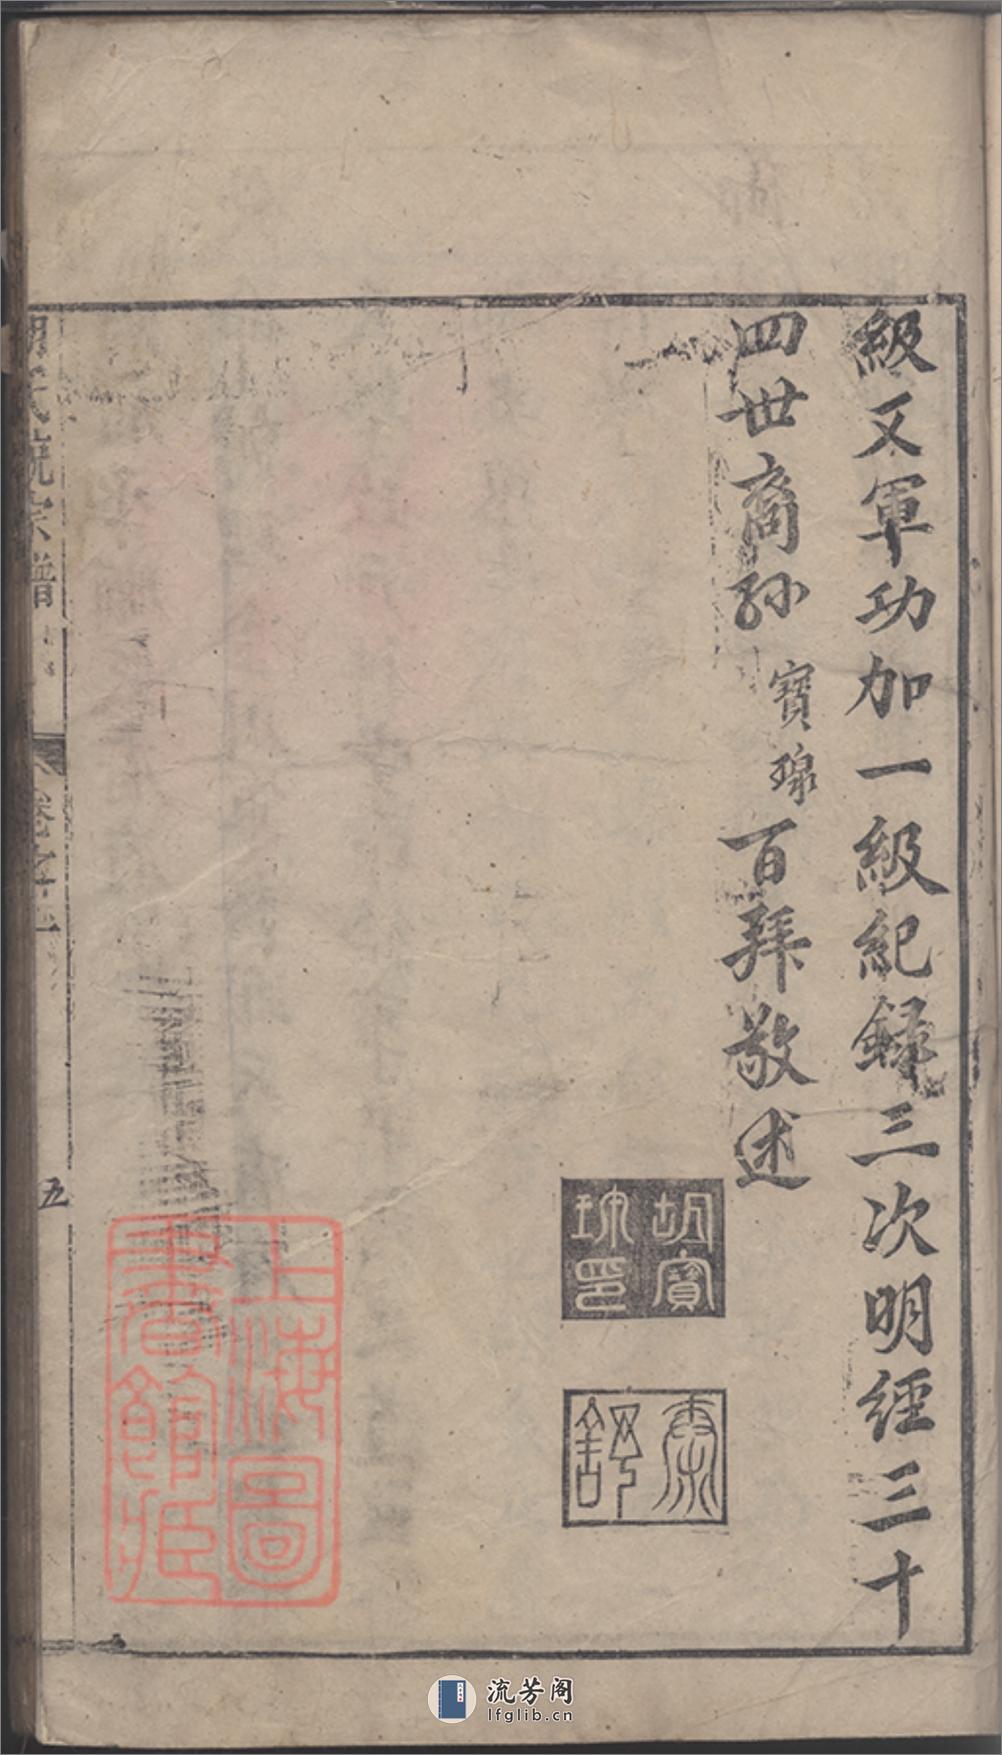 級又軍功加一級紀録三次明經三十
四世裔孫 寶瑔 百拜敬述
胡寶瑔印
泰舒
上海圖
書館藏
氏統宗譜
五
流芳阁
lfglib.cn